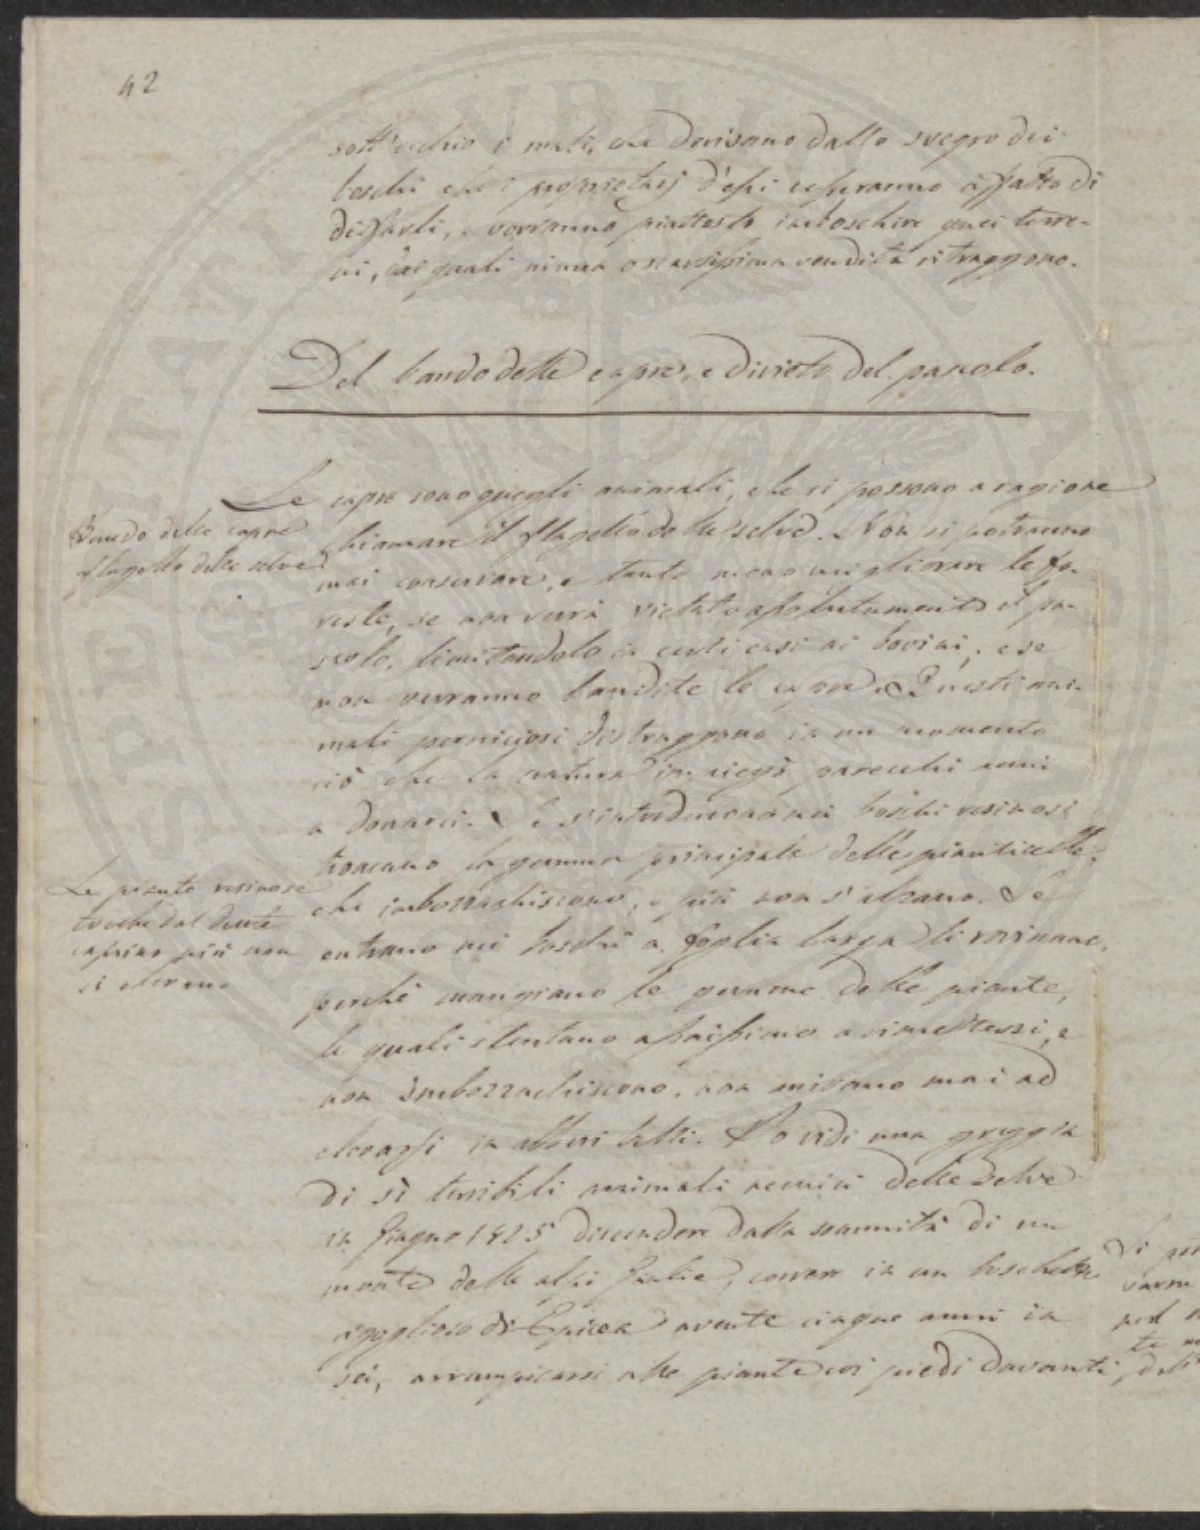 42
sott'occhio i mali, che derivano dallo svegro dei
boschi che i proprietarj d'essi cesseranno affatto di
disfarli, e vorranno piuttosto imboschire quei terre-
ni, dai quali niuna o scarsissima rendita ritraggono.
Del bando delle capre, e divieto del pascolo.
Le capre sono quegli animali, che si possono a ragione
Bando delle capre
flagello delle selve
chiamare il flagello delle selve. Non si potranno
mai conservare, e tanto meno migliorare le fo-
reste, se non verrà vietato assolutamente il pa-
scolo, limitandolo in certi casi ai bovini, e se
non verranno bandite le capre. Questi ani-
mali perniciosi distruggono in un momento
ciò che la natura impiegò parecchi anni
a donarci. Se s'introducono nei boschi resinosi
troncano la gemma principale delle pianticelle,
Le piante resinose
tocche dal dente
caprino più non
si elevano
che imbozzachiscono, e più non s'alzano. Se
entrano nei boschi a foglia larga li rovinano,
perchè mangiano le gemme delle piante,
le quali stentano assaissimo a rimettersi, e
non imbozzachiscono, non arrivano mai ad
elevarsi in alberi belli. Io vidi una greggia
di sì terribili animali nemici delle selve
in Giugno 1825 discendere dalla sommità di un
monte delle alpi Giulie, correre in un boschetto
rigoglioso di Epicea avente cinque anni in
sei, arrampicarsi alle piante coi piedi davanti,